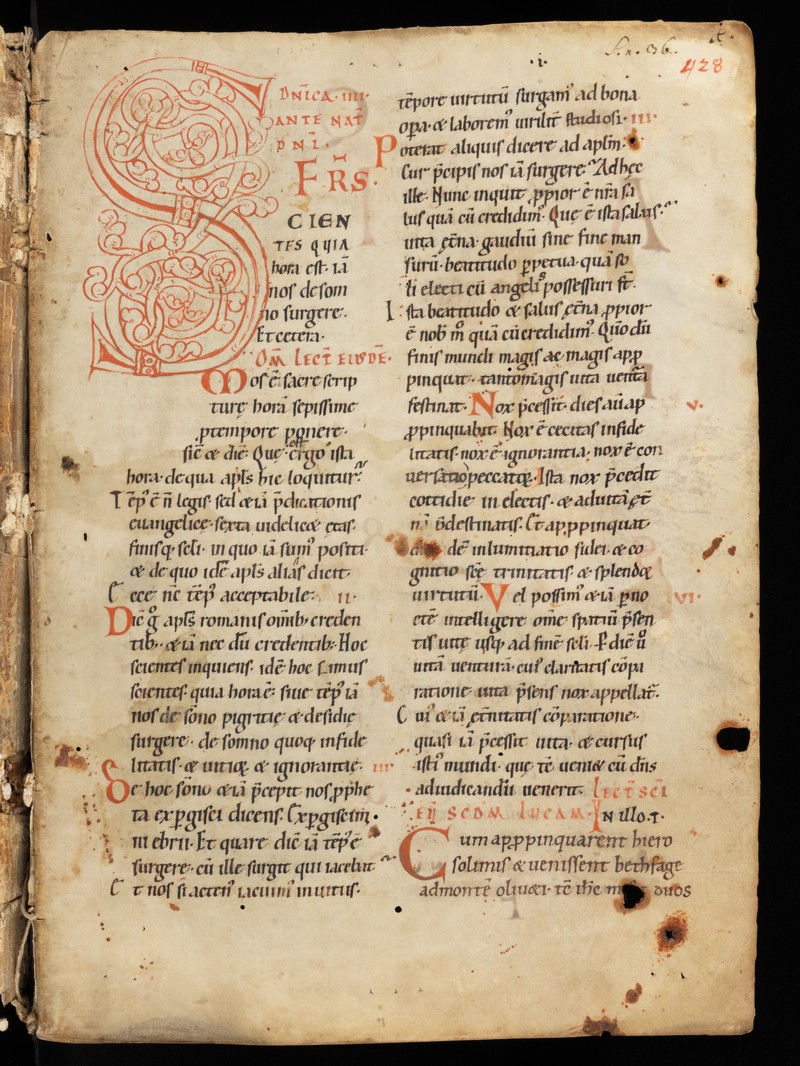 ·i·
428
DNICA· IIII·
ANTE NAT
DNI·
FRS·
SCIEN
TES QUIA
hora est· iā
nos de som
no surgere·
Et cetera·
OM̄ LECT̄ EIUSDĒ·
Mos ē sacre scrip
turę horā sepissime
p tempore ponere·
sic̄ & diē· Que ergo ista
hora· de qua apl̄s hic loquitur·
Tēp̄ ē n̄ legis· sed & iā p̄dicationis
euangelice· sexta uidelic& etas·
finisq; scl̄i· in quo iā sum̄ positi·
& de quo idē apl̄s alias dicit·
Ecce nc̄ tēp̄ acceptabile· II·
Dic̄ g̊ apl̄s romanis omīb; creden
tib;· & iā nec dū credentib;· Hoc
scientes inquiens· idē hoc simus
scientes· quia hora ē· siue tēp̄ iā
nos de sōno pigritię & desidię
surgere· de somno quoq; infide
litatis· & uitioꝝ & ignorantie· III·
De hoc sōno & iā p̄cepit nos p̄ pphe
ta expgisci dicens· Expgiscim̄·
ni ebrii· Et quare dic̄ iā tēp̄ ē
surgere· cū ille surgit qui iacebat·
Et nos si acten̄ iacuim̄ in uitiis·
tēpore uirtutū surgam̄ ad bona
opa· & laborem̄ uirilit̄ studiosi· III·
Poterat aliquis dicere ad aplm̄·
Cur p̄cipis nos iā surgere· Ad hęc
ille· Nunc inquit ppior ē nr̄a sa
lus quā cū credidim̄· Que ē ista salus·
uita ęt̄na· gaudiū sine fine man
surū· beatitudo ppetua· quā so
li electi cū angelis possessuri st̄·
Ista beatitudo & salus ęt̄na ppior
ē nob̄ m̊ quā cū credidim̄· Quō dū
finis mundi magis ac magis app
pinquat· tantomagis uita uentā
festinat· Nox p̄cessit· dies aū ap
ppinquabit· Nox ē cecitas infide V·
litatis· nox ē ignorantia· nox ē con
uersatio peccatoꝝ· Ista nox p̄cedit
cottidie in electis· & ad uitā ęt̄
nā p̄destinatis· Et apppinquat
dē inluminatio fidei· & co
gnitio scę̄ trinitatis· & splendoꝝ
uirtutū· Vel possim̄ & iā p no VI·
ctē intelligere om̄e spatiū p̄sen
tis uitę usq; ad finē scl̄i· P diē ū
uitā uenturā· cui̊ claritatis cōpa
ratione uita p̄sens nox appellat̄·
Cui̊ & iā ęt̄nitatis cōparatione·
quasi iā p̄cessit uita· & cursus
isti̊ mundi· que tē ueni& cū dn̄s
ad iudicandū uenerit· LECT̄ SCI
EŪ SCDM LUCAM· IN illo·t·
Cum apppinquarent hiero
solimis & uenissent bethfage
ad montē oliu&i· tē ih̄c duos